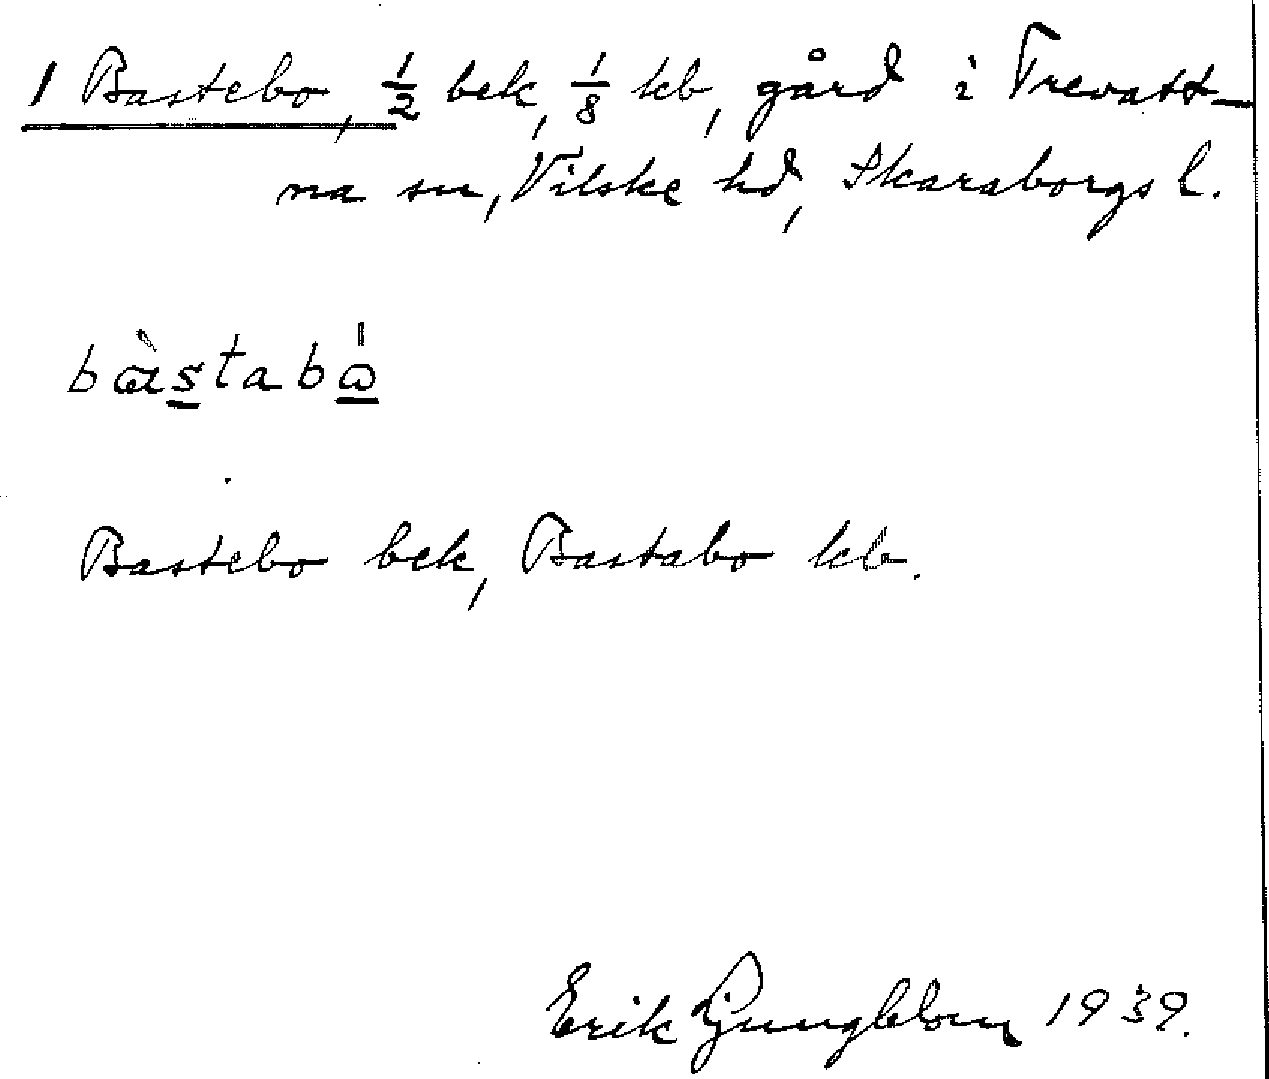 1 Bastebo, 1/2 bek, 1/8 kb, gård i Trevatt-
na sn, Vilske hd, Skaraborgs l.
bàstabω̍
Bastebo bek, Bastabo kb.
Erik Ljungblom 1939.